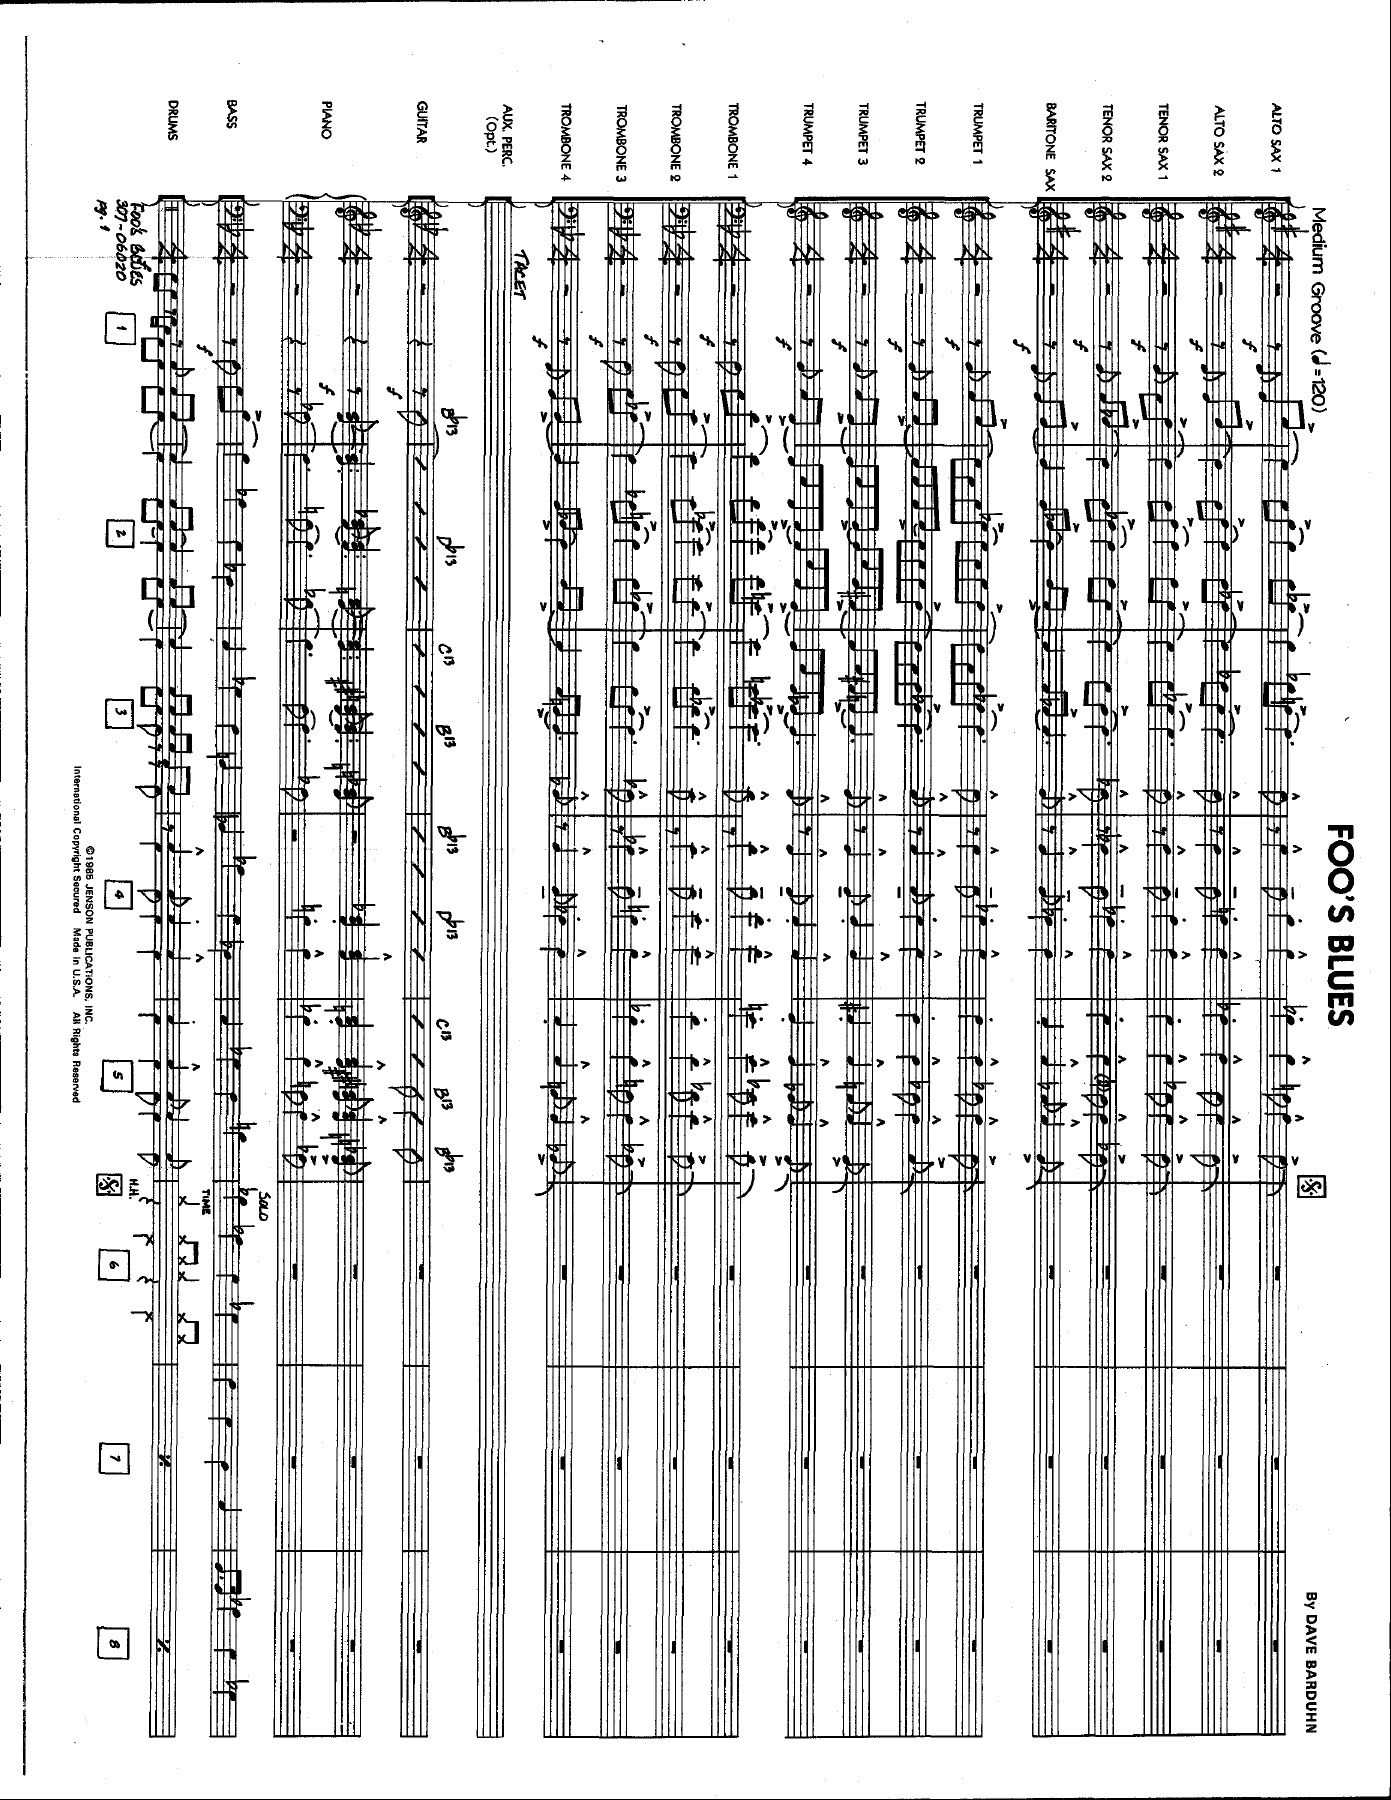 FOO'S BLUES
By DAVE BARDUHN
Medium Groove (♩=120)
ALTO SAX 1
ALTO SAX 2
TENOR SAX 1
TENOR SAX 2
BARITONE SAX
f f f f f
TRUMPET 1
TRUMPET 2
TRUMPET 3
TRUMPET 4
f f f f
TROMBONE 1
TROMBONE 2
TROMBONE 3
TROMBONE 4
f f f f
AUX. PERC.
(Opt.)
TACET
GUITAR
B♭13 D♭13 C13 B13 B♭13 D♭13 C13 B13 B♭13
f
PIANO
f
BASS
SOLO
f
DRUMS
TIME
H.H.
f
1 2 3 4 5 6 7 8
Foo's Blues
307-06020
pg. 1
©1985 JENSON PUBLICATIONS, INC.
International Copyright Secured Made in U.S.A. All Rights Reserved